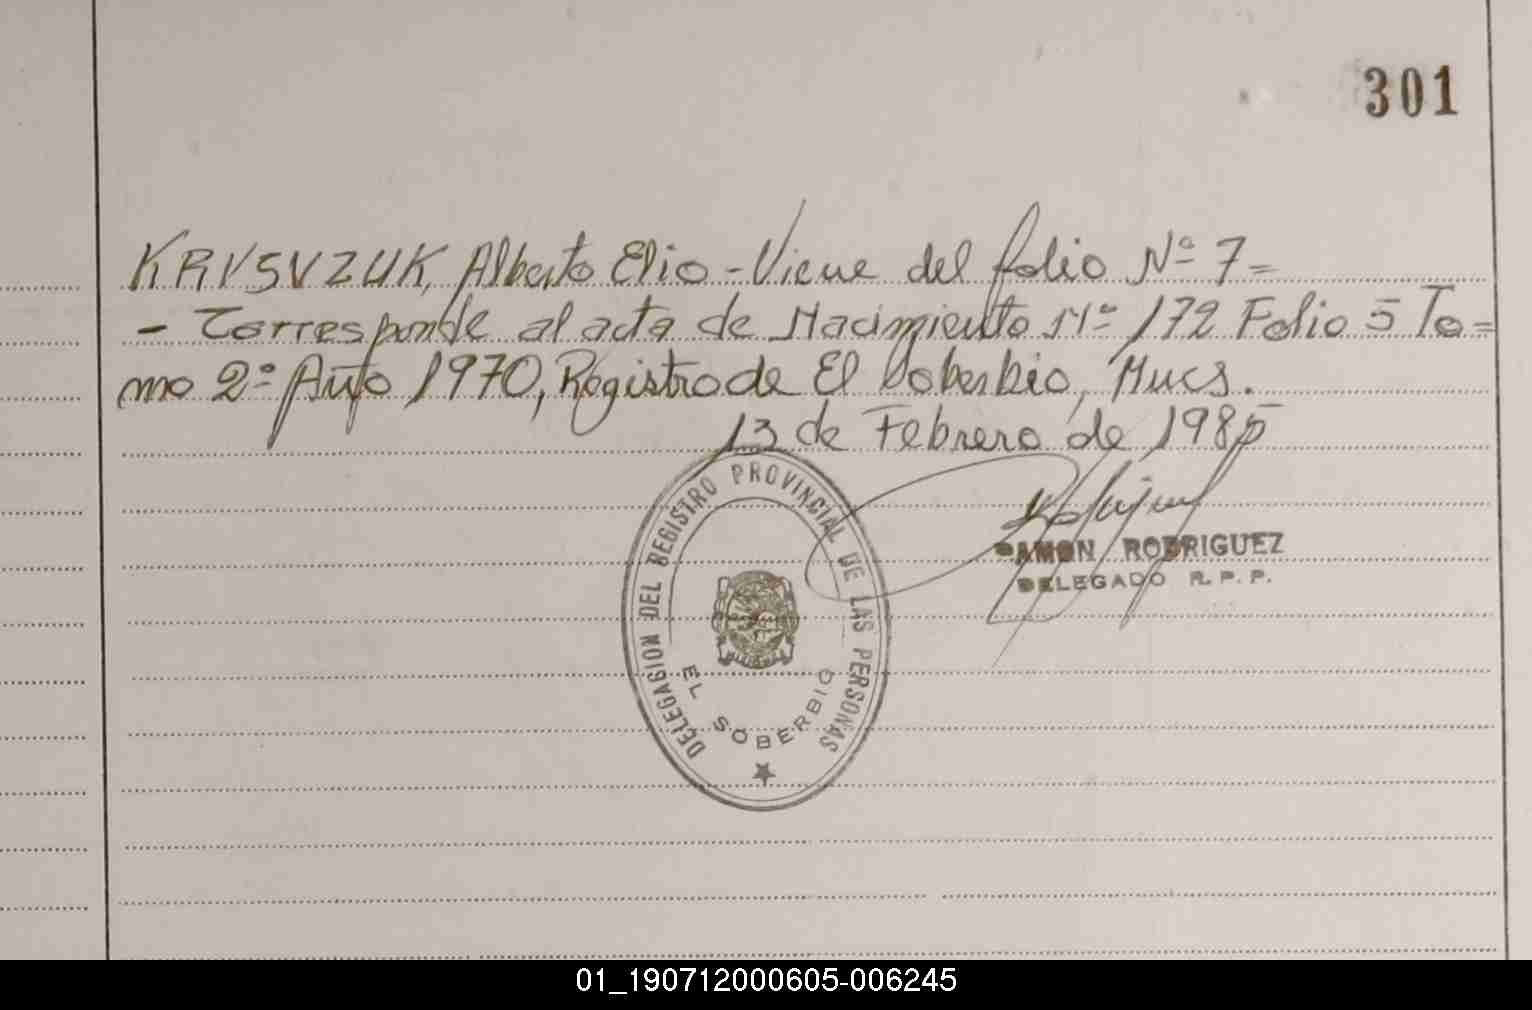 301
KRYSVZUK, Alberto Elio - Viene del folio Nº 7 =
- Corresponde al acta de Nacimiento Nº 172 Folio 5 To=
mo 2º Año 1970, Registro de El Soberbio, Mnes.
13 de Febrero de 1985
RAMON RODRIGUEZ
DELEGADO R. P. P.
DELEGACION DEL REGISTRO PROVINCIAL DE LAS PERSONAS
EL SOBERBIO
01_190712000605-006245